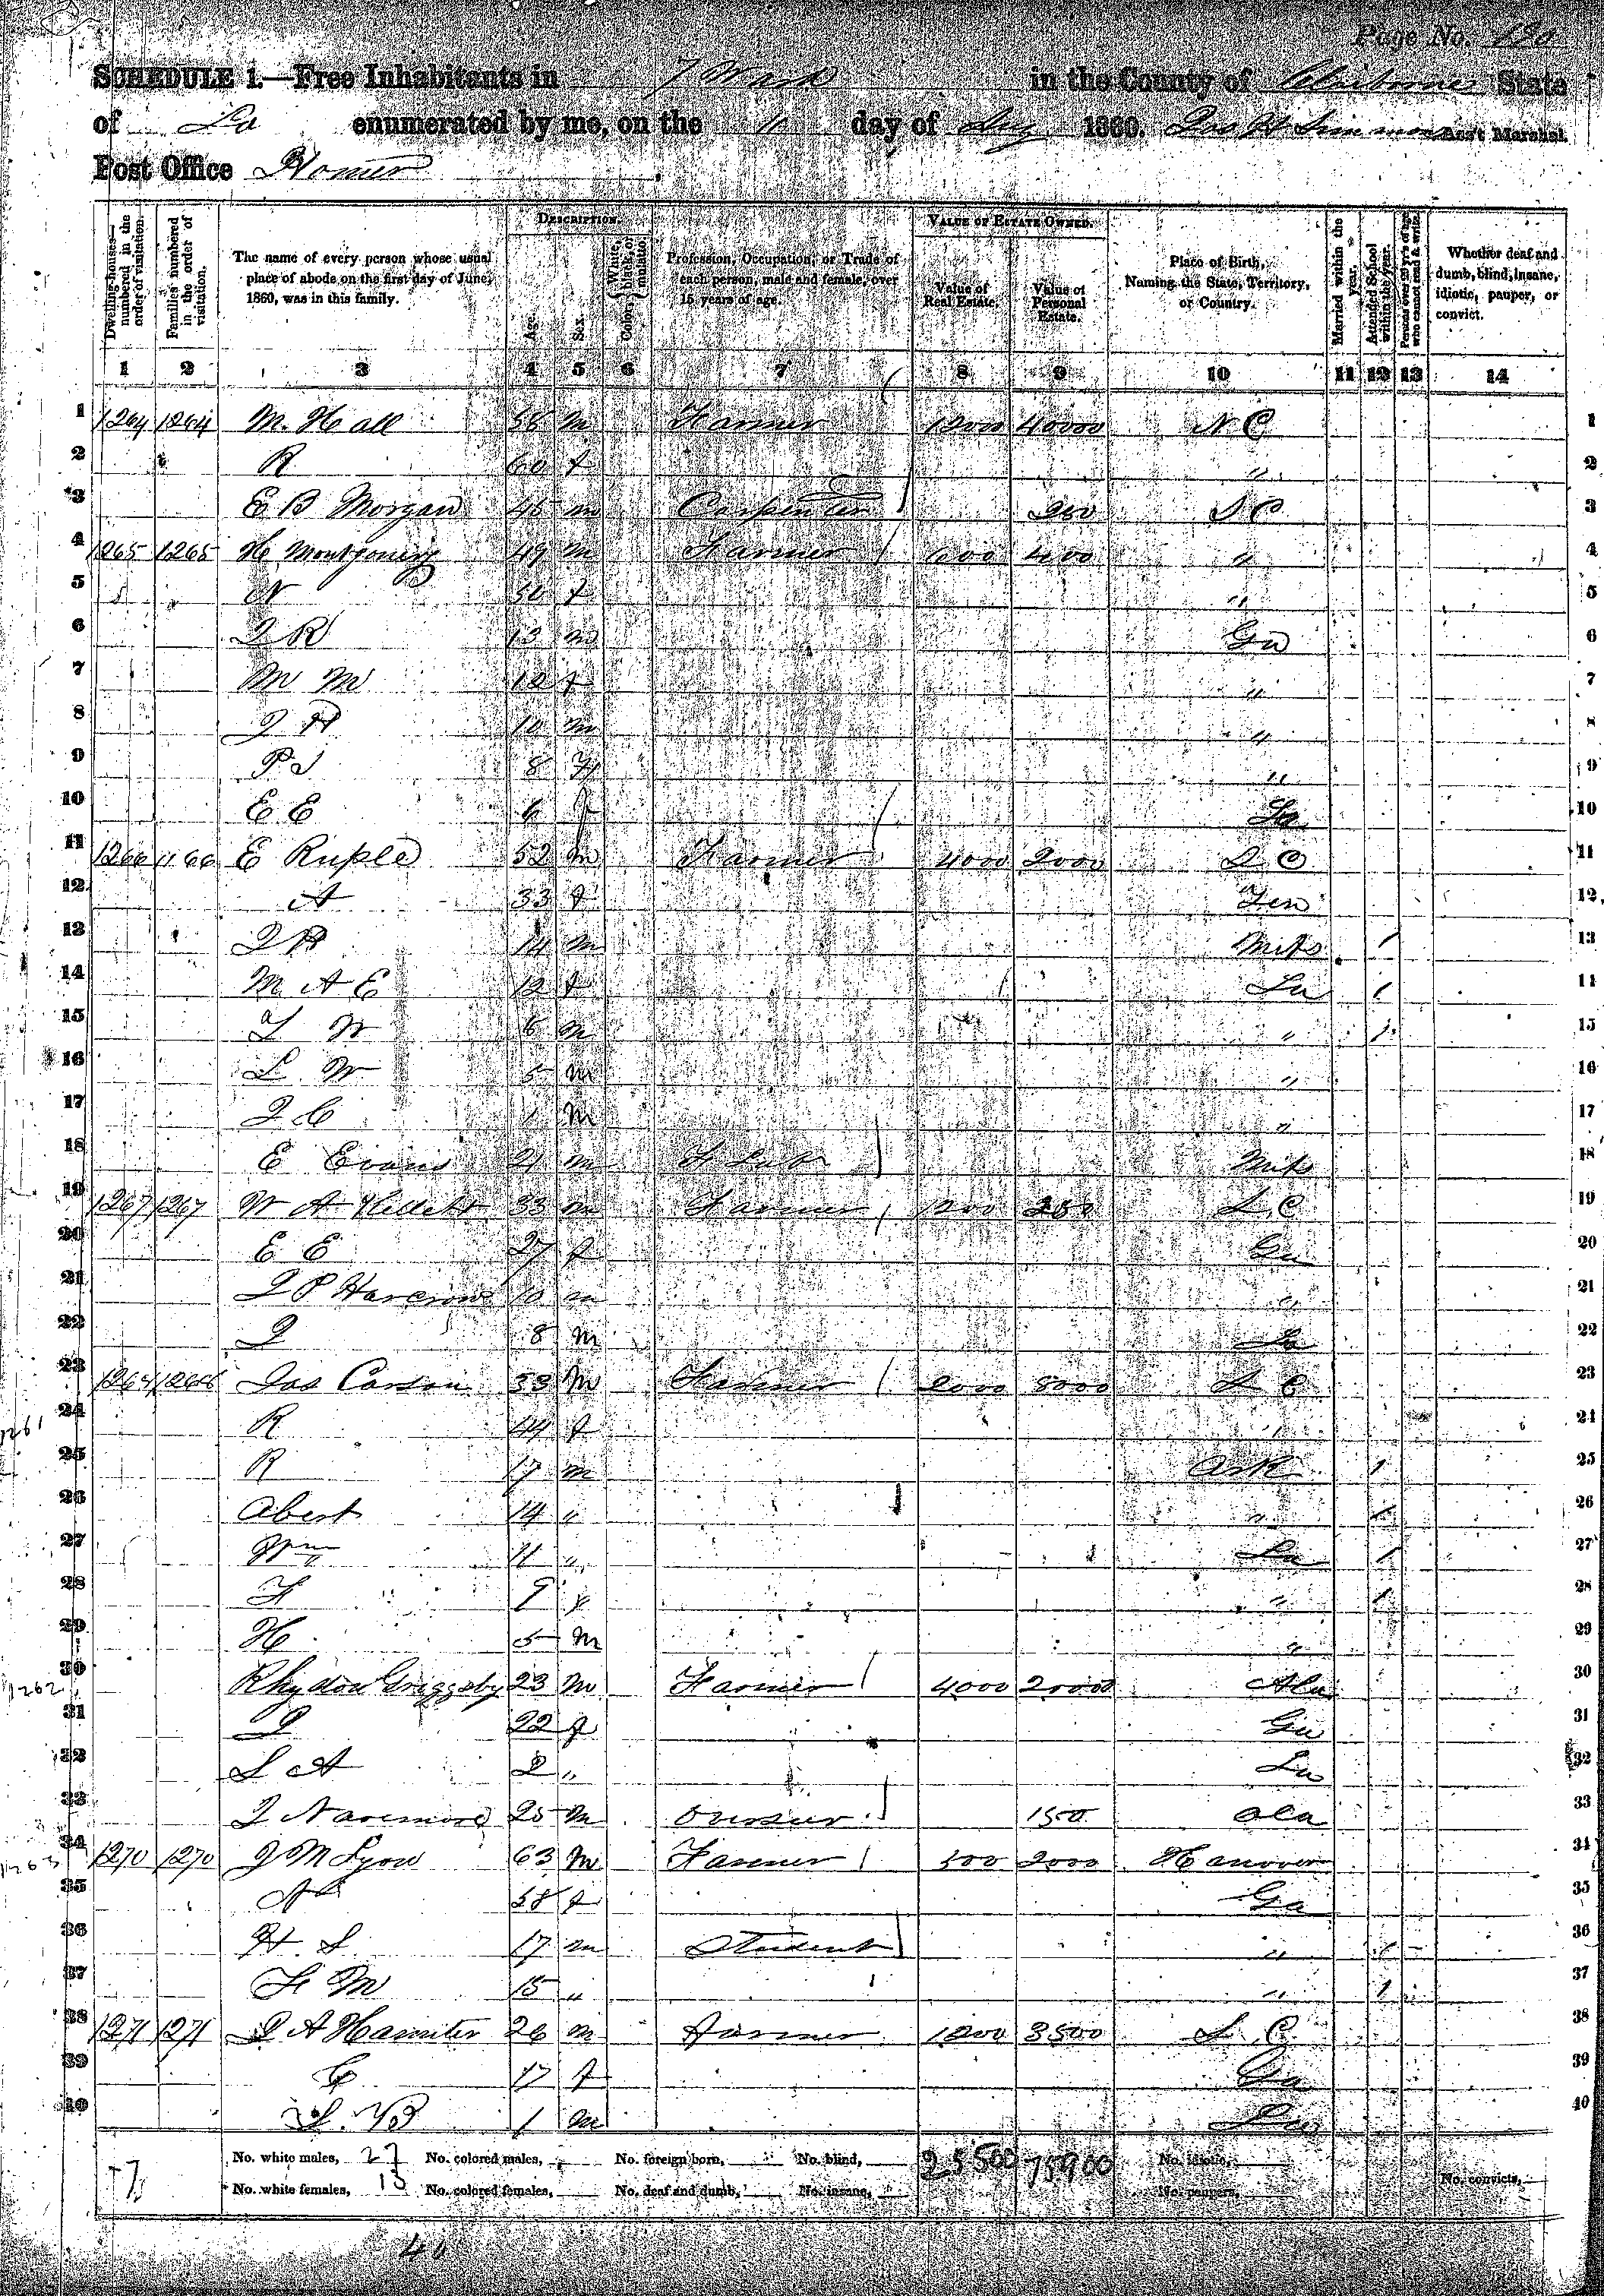 Page No. 180
SCHEDULE 1.—Free Inhabitants in 7 Ward in the County of Claiborne State
of La enumerated by me, on the 10 day of Aug 1860. Jas H Simmons Ass't Marshal.
Post Office Homer
Dwelling-houses—numbered in the order of visitation. Families numbered in the order of visitation. The name of every person whose usual place of abode on the first day of June, 1860, was in this family. DESCRIPTION. Age. Sex. Color, White, black, or mulatto. Profession, Occupation, or Trade of each person, male and female, over 15 years of age. VALUE OF ESTATE OWNED. Value of Real Estate. Value of Personal Estate. Place of Birth, Naming the State, Territory, or Country. Married within the year. Attended School within the year. Persons over 20 y'rs of age who cannot read & write. Whether deaf and dumb, blind, insane, idiotic, pauper, or convict.
1 2 3 4 5 6 7 8 9 10 11 12 13 14
1 1264 1264 M. Hall 58 m Farmer 12000 40000 N C 1
2 R 60 f " 2
3 E B Morgan 45 m Carpenter 200 S C 3
4 1265 1265 H Montgomery 49 m Farmer 600 400 " 4
5 N 50 f " 5
6 J R 13 m Ga 6
7 M M 12 f " 7
8 J H 10 m " 8
9 P J 8 f " 9
10 E E 6 f La 10
11 1266 1166 E Ruple 52 m Farmer 4000 2000 S C 11
12 A 33 f Ten 12
13 J H 14 m Miss / 13
14 M A E 12 f La / 14
15 T W 6 m " / 15
16 L W 5 m " 16
17 J C 1 m " 17
18 E Evans 21 m F Labr Miss 18
19 1267 1267 W A 33 m Farmer 1200 250 S C 19
20 E E 27 f Ga 20
21 J P Harcrow 10 m " 21
22 J 8 m La 22
23 1268 1268 Jas Carson 33 m Farmer 2000 8000 S C 23
1261 24 R 44 f " 24
25 R 17 m Ark / 25
26 Abert 14 " " / 26
27 Wm 11 " La / 27
28 F 9 f " / 28
29 H 5 m " 29
1262 30 Rhydon Griggsby 23 m Farmer 4000 20000 Ala 30
31 J 22 f Ga 31
32 S A 2 " La 32
33 J Naremore 25 m Overseer 1500 Ala 33
1263 34 1270 1270 J M Lyon 63 m Farmer 500 2000 Hanover 34
35 N 58 f Ga 35
36 H. S 17 m Student " / 36
37 F M 15 " " / 37
38 1271 1271 J A Hamiter 26 m Farmer 1200 3500 S. C. 38
39 C 17 f Ga 39
40 S. B 1 m La 40
No. white males, 27 No. colored males, No. foreign born, No. blind, 25500 75900 No. idiotic,
No. white females, 13 No. colored females, No. deaf and dumb, No. insane, No. paupers, No. convicts,
40